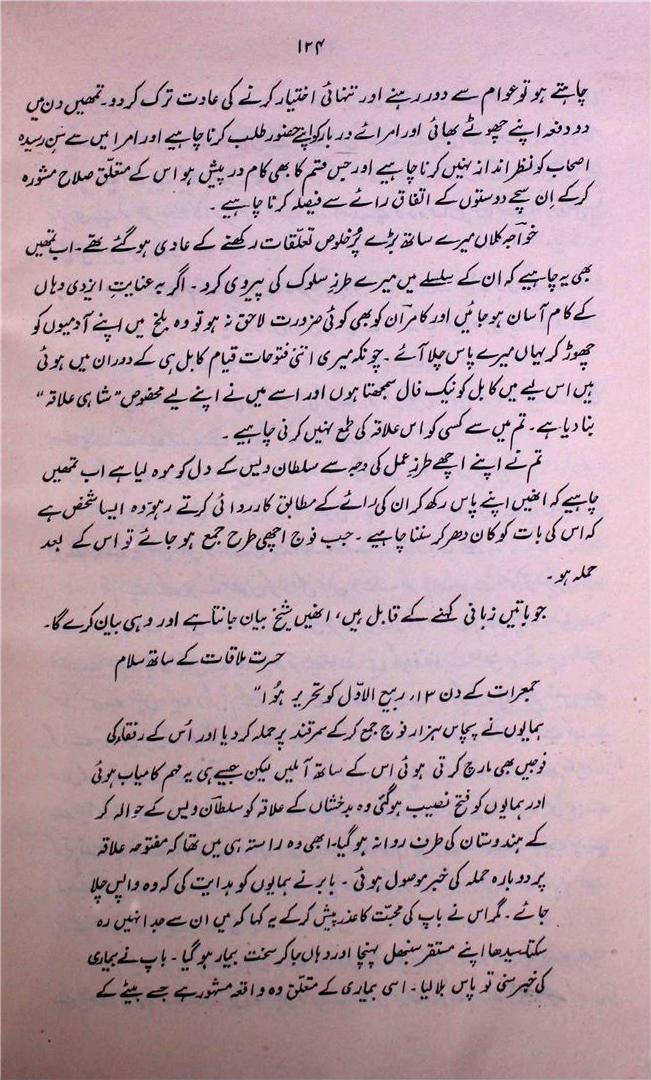 ۱۲۴
چاہتے ہو تو عوام سے دور رہنے اور تنہائی اختیار کرنے کی عادت ترک کر دو۔ تمھیں دن میں
دو دفعہ اپنے چھوٹے بھائی اور امرائے دربار کو اپنے حضور طلب کرنا چاہیے اور امرا میں سے سَن رسیدہ
اصحاب کو نظر انداز نہیں کرنا چاہیے اور جس قسم کا بھی کام در پیش ہو اس کے متعلق صلاح مشورہ
کر کے اِن سچے دوستوں کے اتفاق رائے سے فیصلہ کرنا چاہیے ۔
خواجہ کلاں میرے ساتھ بڑے پُر خلوص تعلقات رکھنے کے عادی ہو گئے تھے۔ اب تمھیں
بھی یہ چاہیے کہ ان کے سلسلے میں میرے طرزِ سلوک کی پیروی کرو۔ اگر بہ عنایتِ ایزدی وہاں
کے کام آسان ہو جائیں اور کامران کو بھی کوئی ضرورت لاحق نہ ہو تو وہ بلخ میں اپنے آدمیوں کو
چھوڑ کر یہاں میرے پاس چلا آئے ۔ چونکہ میری اتنی فتوحات قیام کابل ہی کے دوران میں ہوئی
ہیں اس لیے میں کابل کو نیک فال سمجھتا ہوں اور اسے میں نے اپنے لیے مخصوص ”شاہی علاقہ“
بنا دیا ہے۔ تم میں سے کسی کو اس علاقہ کی طمع نہیں کرنی چاہیے ۔
تم نے اپنے اچھے طرزِ عمل کی وجہ سے سلطان ویس کے دل کو موہ لیا ہے اب تمھیں
چاہیے کہ انھیں اپنے پاس رکھ کر ان کی رائے کے مطابق کارروائی کرتے رہو، وہ ایسا شخص ہے
کہ اس کی بات کو کان دھر کر سننا چاہیے ۔ جب فوج اچھی طرح جمع ہو جائے تو اس کے بعد
حملہ ہو۔
جو باتیں زبانی کہنے کے قابل ہیں، انھیں شیخ بیان جانتا ہے اور وہی بیان کرے گا۔
حسرت ملاقات کے ساتھ سلام
جمعرات کے دن ۱۳، ربیع الاوّل کو تحریر ہُوا“
ہمایوں نے پچاس ہزار فوج جمع کر کے سمرقند پر حملہ کر دیا اور اُس کے رفقاء کی
فوجیں بھی مارچ کرتی ہوئی اس کے ساتھ آ ملیں لیکن جیسے ہی یہ مہم کامیاب ہوئی
اور ہمایوں کو فتح نصیب ہو گئی وہ بدخشاں کے علاقہ کو سلطان ویس کے حوالہ کر
کے ہندوستان کی طرف روانہ ہو گیا۔ ابھی وہ راستہ ہی میں تھا کہ مفتوحہ علاقہ
پر دوبارہ حملہ کی خبر موصول ہوئی ۔ بابر نے ہمایوں کو ہدایت کی کہ وہ واپس چلا
جائے ۔ مگر اس نے باپ کی محبّت کا عذر پیش کر کے یہ کہا کہ میں ان سے جدا نہیں رہ
سکتا سیدھا اپنے مستقر سنبھل پہنچا اور وہاں جا کر سخت بیمار ہو گیا ۔ باپ نے بیماری
کی خبر سنی تو پاس بلا لیا۔ اسی بیماری کے متعلق وہ واقعہ مشہور ہے جسے بیٹے کے